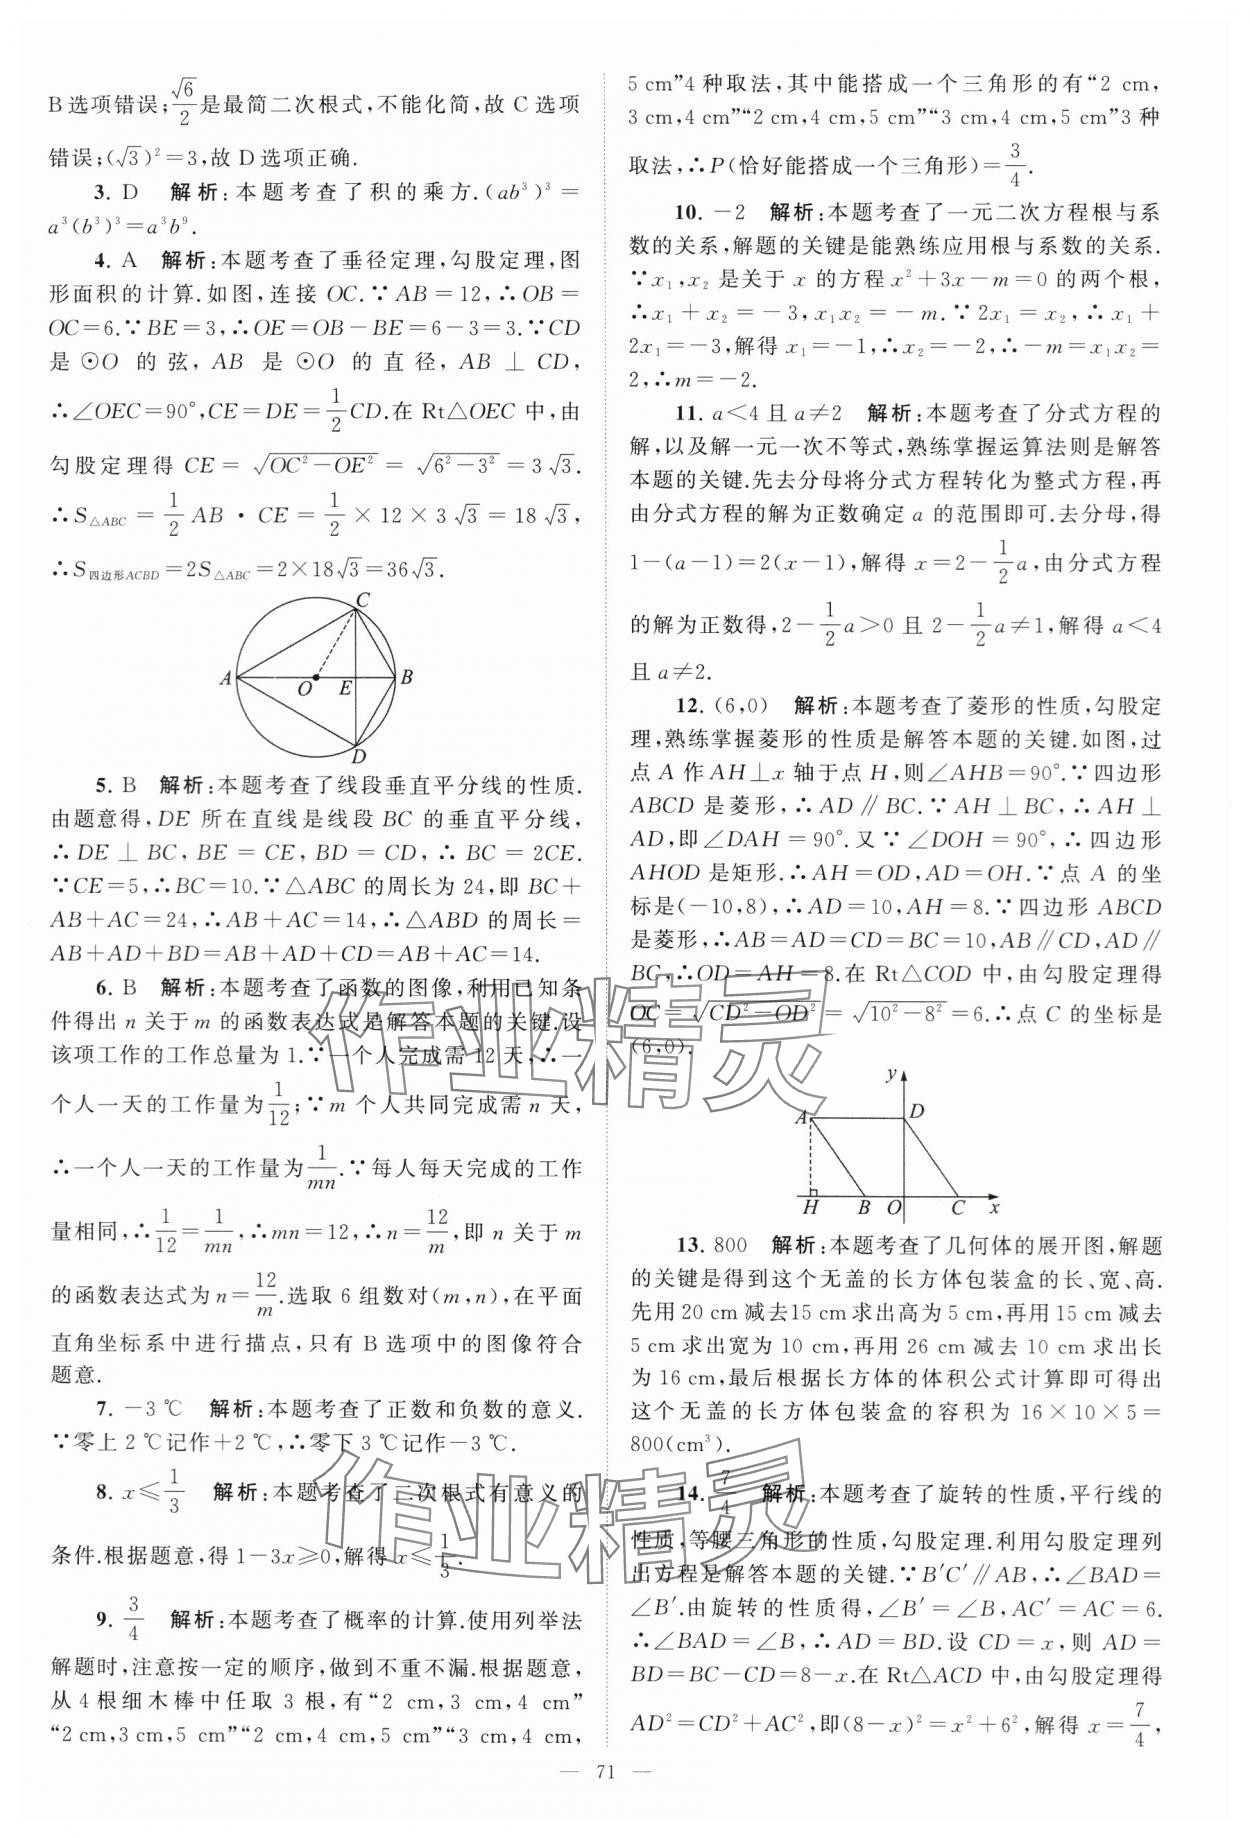 B选项错误;√6/2是最简二次根式,不能化简,故C选项
错误;(√3)²=3,故D选项正确.
3. D 解析:本题考查了积的乘方.(ab³)³=
a³(b³)³=a³b⁹.
4. A 解析:本题考查了垂径定理,勾股定理,图
形面积的计算.如图,连接OC.∵AB=12,∴OB=
OC=6.∵BE=3,∴OE=OB-BE=6-3=3.∵CD
是⊙O的弦,AB是⊙O的直径,AB⊥CD,
∴∠OEC=90°,CE=DE=1/2CD.在Rt△OEC中,由
勾股定理得CE=√(OC²-OE²)=√(6²-3²)=3√3.
∴S△ABC=1/2AB·CE=1/2×12×3√3=18√3,
∴S四边形ACBD=2S△ABC=2×18√3=36√3.
C
A O E B
D
5. B 解析:本题考查了线段垂直平分线的性质.
由题意得,DE所在直线是线段BC的垂直平分线,
∴DE⊥BC,BE=CE,BD=CD,∴BC=2CE.
∵CE=5,∴BC=10.∵△ABC的周长为24,即BC+
AB+AC=24,∴AB+AC=14,∴△ABD的周长=
AB+AD+BD=AB+AD+CD=AB+AC=14.
6. B 解析:本题考查了函数的图像,利用已知条
件得出n关于m的函数表达式是解答本题的关键.设
该项工作的工作总量为1.∵一个人完成需12天,∴一
个人一天的工作量为1/12;∵m个人共同完成需n天,
∴一个人一天的工作量为1/mn.∵每人每天完成的工作
量相同,∴1/12=1/mn,∴mn=12,∴n=12/m,即n关于m
的函数表达式为n=12/m.选取6组数对(m,n),在平面
直角坐标系中进行描点,只有B选项中的图像符合
题意.
7. -3℃ 解析:本题考查了正数和负数的意义.
∵零上2℃记作+2℃,∴零下3℃记作-3℃.
8. x≤1/3 解析:本题考查了二次根式有意义的
条件.根据题意,得1-3x≥0,解得x≤1/3.
9. 3/4 解析:本题考查了概率的计算.使用列举法
解题时,注意按一定的顺序,做到不重不漏.根据题意,
从4根细木棒中任取3根,有“2 cm,3 cm,4 cm”
“2 cm,3 cm,5 cm”“2 cm,4 cm,5 cm”“3 cm,4 cm,
5 cm”4种取法,其中能搭成一个三角形的有“2 cm,
3 cm,4 cm”“2 cm,4 cm,5 cm”“3 cm,4 cm,5 cm”3种
取法,∴P(恰好能搭成一个三角形)=3/4.
10. -2 解析:本题考查了一元二次方程根与系
数的关系,解题的关键是能熟练应用根与系数的关系.
∵x₁,x₂是关于x的方程x²+3x-m=0的两个根,
∴x₁+x₂=-3,x₁x₂=-m.∵2x₁=x₂,∴x₁+
2x₁=-3,解得x₁=-1,∴x₂=-2,∴-m=x₁x₂=
2,∴m=-2.
11. a<4且a≠2 解析:本题考查了分式方程的
解,以及解一元一次不等式,熟练掌握运算法则是解答
本题的关键.先去分母将分式方程转化为整式方程,再
由分式方程的解为正数确定a的范围即可.去分母,得
1-(a-1)=2(x-1),解得x=2-1/2a,由分式方程
的解为正数得,2-1/2a>0且2-1/2a≠1,解得a<4
且a≠2.
12. (6,0) 解析:本题考查了菱形的性质,勾股定
理,熟练掌握菱形的性质是解答本题的关键.如图,过
点A作AH⊥x轴于点H,则∠AHB=90°.∵四边形
ABCD是菱形,∴AD∥BC.∵AH⊥BC,∴AH⊥
AD,即∠DAH=90°.又∵∠DOH=90°,∴四边形
AHOD是矩形.∴AH=OD,AD=OH.∵点A的坐
标是(-10,8),∴AD=10,AH=8.∵四边形ABCD
是菱形,∴AB=AD=CD=BC=10,AB∥CD,AD∥
BC,∴OD=AH=8.在Rt△COD中,由勾股定理得
OC=√(CD²-OD²)=√(10²-8²)=6.∴点C的坐标是
(6,0).
y
A D
H B O C x
13. 800 解析:本题考查了几何体的展开图,解题
的关键是得到这个无盖的长方体包装盒的长、宽、高.
先用20 cm减去15 cm求出高为5 cm,再用15 cm减去
5 cm求出宽为10 cm,再用26 cm减去10 cm求出长
为16 cm,最后根据长方体的体积公式计算即可得出
这个无盖的长方体包装盒的容积为16×10×5=
800(cm³).
14. 7/4 解析:本题考查了旋转的性质,平行线的
性质,等腰三角形的性质,勾股定理.利用勾股定理列
出方程是解答本题的关键.∵B′C′∥AB,∴∠BAD=
∠B′.由旋转的性质得,∠B′=∠B,AC′=AC=6.
∴∠BAD=∠B,∴AD=BD.设CD=x,则AD=
BD=BC-CD=8-x.在Rt△ACD中,由勾股定理得
AD²=CD²+AC²,即(8-x)²=x²+6²,解得x=7/4,
— 71 —
作业精灵
作业精灵